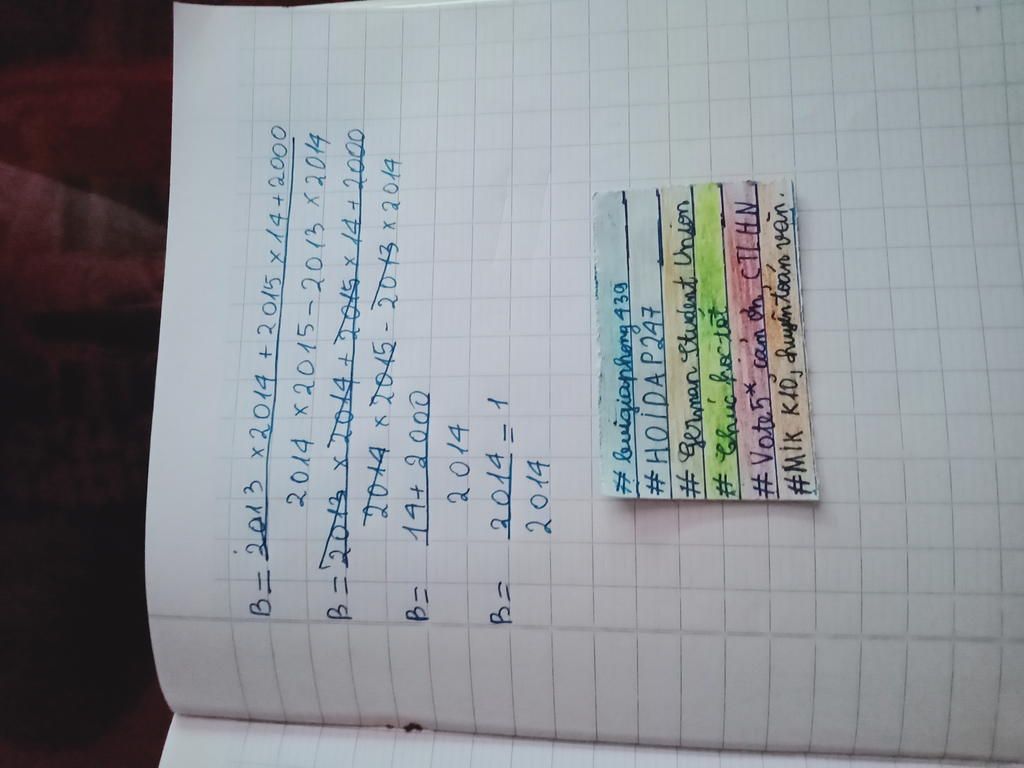 B = 2013 × 2014 + 2015 × 14 + 2000
2014 × 2015 - 2013 × 2014
B = 2013 × 2014 + 2015 × 14 + 2000
2014 × 2015 - 2013 × 2014
B = 14 + 2000
2014
B = 2014 = 1
2014
# buigiaphong439
# HOIDAP247
# German Student Union
# Chúc học tốt
# Vote 5* cảm ơn CTLHN
# MIK K10, chuyên toán văn.